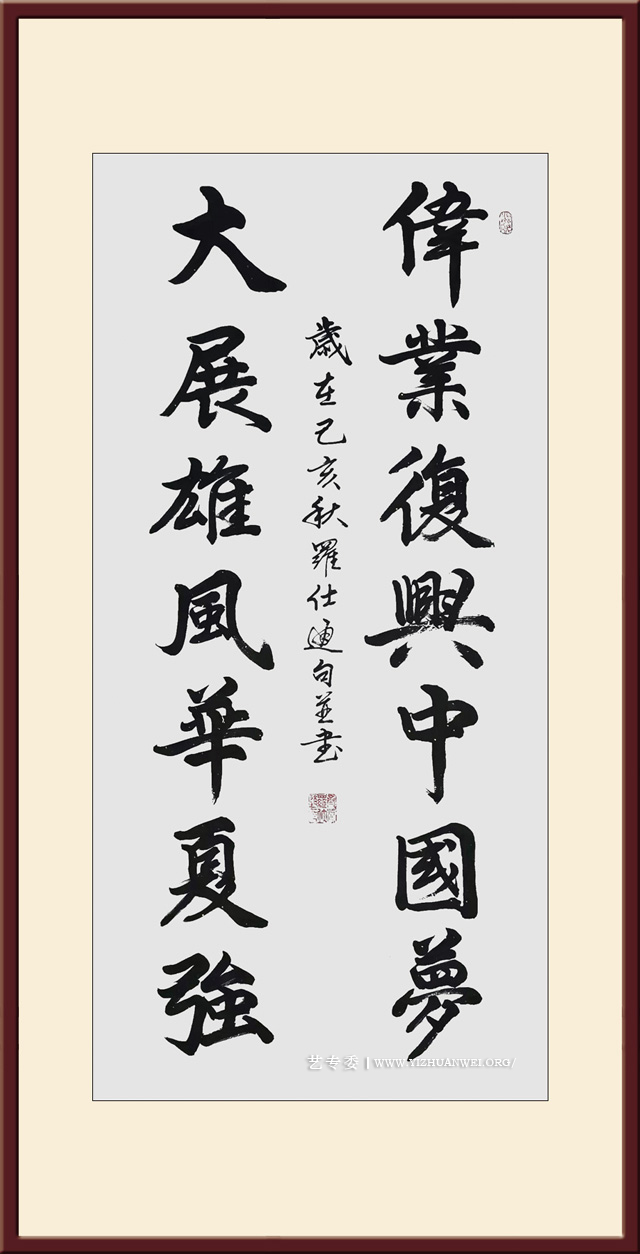 偉業復興中國夢
大展雄風華夏強
歲在己亥秋羅仕通句並書
艺专委 | WWW.YIZHUANWEI.ORG/